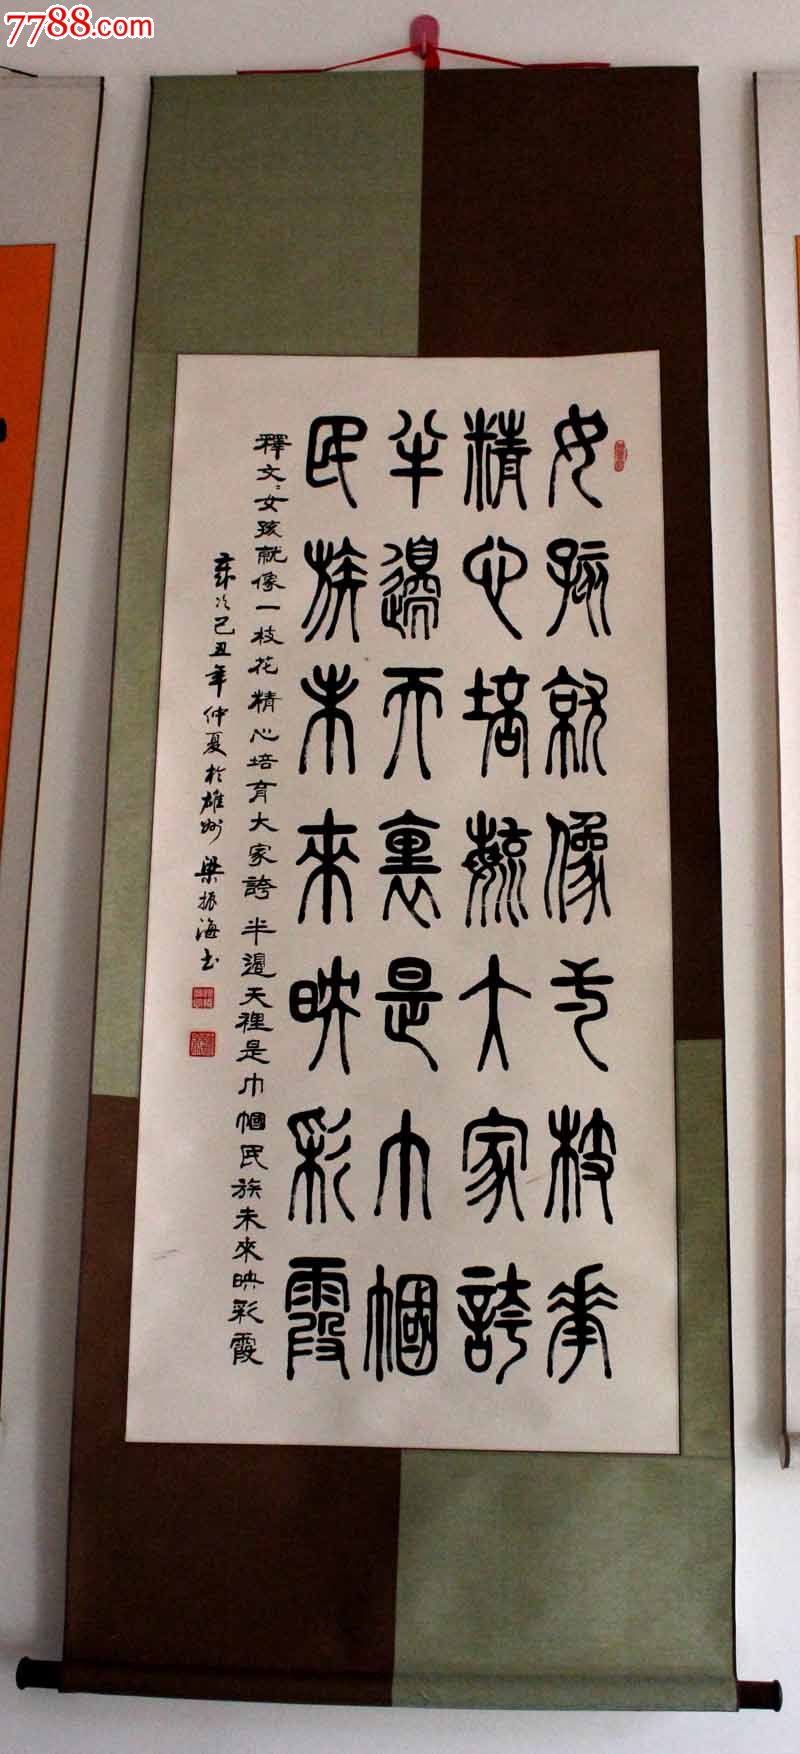 7788.com
中国收藏热线
女孩就像一枝花
精心培毓大家誇
半邊天裏是巾帼
民族未來映彩霞
釋文：女孩就像一枝花精心培育大家誇半邊天裡是巾帼民族未來映彩霞
歲次己丑年仲夏於雄州梁振海书